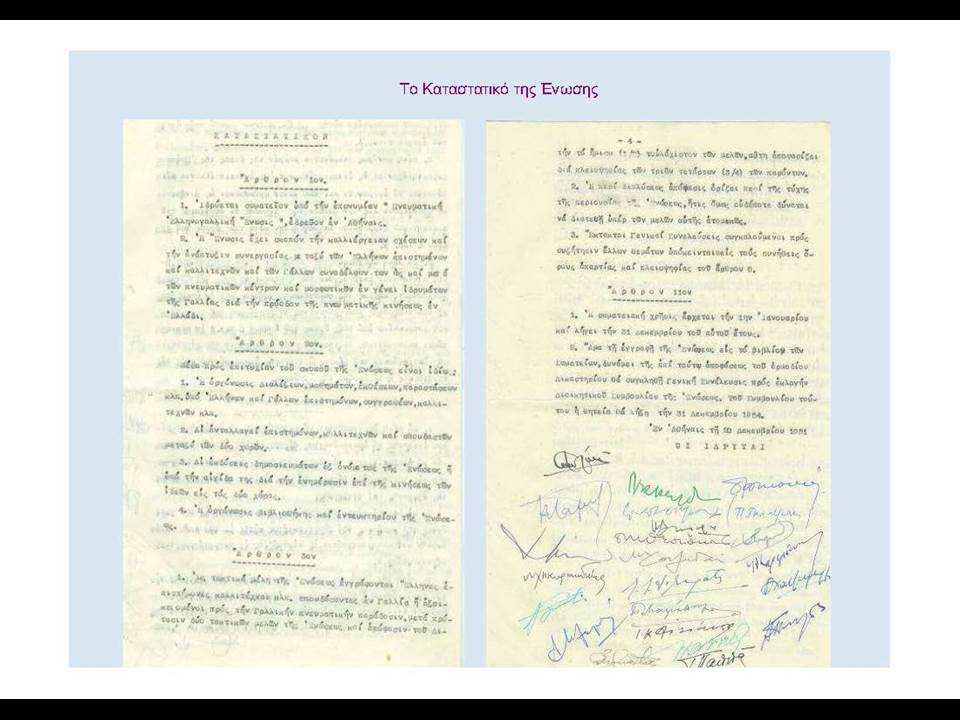 Το Καταστατικό της Ένωσης
ΚΑΤΑΣΤΑΤΙΚΟΝ
Ἄρθρον 1ον.
1. Ἱδρύεται σωματεῖον ὑπό τήν ἐπωνυμίαν " Πνευματική
Ἑλληνογαλλική Ἕνωσις", ἑδρεῦον ἐν Ἀθήναις.
2. Ἡ Ἕνωσις ἔχει σκοπόν τήν καλλιέργειαν σχέσεων καί
τήν ἀνάπτυξιν συνεργασίας μεταξύ τῶν Ἑλλήνων ἐπιστημόνων
καί καλλιτεχνῶν καί τῶν Γάλλων συναδέλφων των ὡς καί με
τῶν πνευματικῶν κέντρων καί μορφωτικῶν ἐν γένει ἱδρυμάτων
τῆς Γαλλίας διά τήν πρόοδον τῆς πνευματικῆς κινήσεως ἐν
Ἑλλάδι.
Ἄρθρον 2ον.
Μέσα πρός ἐπιτυχίαν τοῦ σκοποῦ τῆς Ἑνώσεως εἶναι ἰδίως:
1. Ἡ ὀργάνωσις διαλέξεων, μαθημάτων, ἐκθέσεων, παραστάσεων
κλπ. ὑπό Ἑλλήνων καί Γάλλων ἐπιστημόνων, συγγραφέων, καλλι-
τεχνῶν κλπ.
2. Αἱ ἀνταλλαγαί ἐπιστημόνων, καλλιτεχνῶν καί σπουδαστῶν
μεταξύ τῶν δύο χωρῶν.
3. Αἱ ἐκδόσεις δημοσιευμάτων ἐξ ὀνόματος τῆς Ἑνώσεως ἤ
ὑπό τήν αἰγίδα της διά τήν ἐνημέρωσιν ἐπί τῆς κινήσεως τῶν
ἰδεῶν εἰς τάς δύο χώρας.
4. Ἡ ὀργάνωσις βιβλιοθήκης καί ἐντευκτηρίου τῆς Ἑνώσε-
ως.
Ἄρθρον 3ον
1. Ὡς τακτικά μέλη τῆς Ἑνώσεως ἐγγράφονται Ἕλληνες ἐ-
πιστήμονες, καλλιτέχναι κλπ. σπουδάσαντες ἐν Γαλλίᾳ ἤ ἐξοι-
κειωμένοι πρός τήν Γαλλικήν πνευματικήν παράδοσιν, μετά πρό-
τασιν δύο τακτικῶν μελῶν τῆς Ἑνώσεως καί ἀπόφασιν τοῦ Δι-
- 4 -
τήν τό ἥμισυ τοὐλάχιστον τῶν μελῶν, αὕτη ἀποφασίζει
διά πλειοψηφίας τῶν τριῶν τετάρτων (3/4) τῶν παρόντων.
2. Ἡ περί διαλύσεως ἀπόφασις ὁρίζει περί τῆς τύχης
τῆς περιουσίας τῆς Ἑνώσεως, ἥτις ὅμως οὐδέποτε δύναται
νά διατεθῇ ὑπέρ τῶν μελῶν αὐτῆς ἀτομικῶς.
3. Ἔκτακτοι Γενικαί Συνελεύσεις συγκαλούμεναι πρός
συζήτησιν ἄλλων θεμάτων ὑπόκεινται εἰς τούς συνήθεις ὅ-
ρους ἀπαρτίας καί πλειοψηφίας τοῦ ἄρθρου 8.
Ἄρθρον 11ον
1. Ἡ σωματειακή χρῆσις ἄρχεται τήν 1ην Ἰανουαρίου
καί λήγει τήν 31 Δεκεμβρίου τοῦ αὐτοῦ ἔτους.
2. Ἅμα τῇ ἐγγραφῇ τῆς Ἑνώσεως εἰς τό βιβλίον τῶν
Σωματείων, δυνάμει τῆς ἐπί τούτῳ ἀποφάσεως τοῦ ἁρμοδίου
Δικαστηρίου θά συγκληθῇ Γενική Συνέλευσις πρός ἐκλογήν
Διοικητικοῦ Συμβουλίου τῆς Ἑνώσεως. Τοῦ Συμβουλίου τού-
του ἡ θητεία θά λήξῃ τήν 31 Δεκεμβρίου 1954.
Ἐν Ἀθήναις τῇ 20 Δεκεμβρίου 1951
ΟΙ ΙΔΡΥΤΑΙ